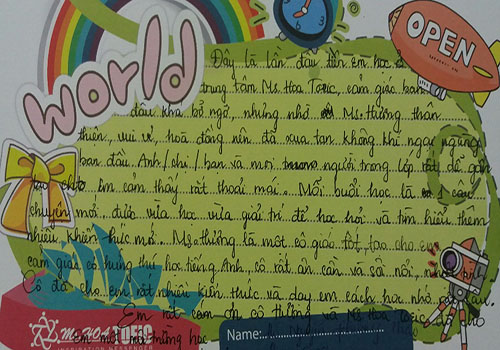 world
OPEN
Đây là lần đầu tiên em học ở
trung tâm Ms. Hoa Toeic, cảm giác ban
đầu khá bỡ ngỡ, nhưng nhờ Ms. Hường thân
thiện, vui vẻ, hoà đồng nên đã xua tan không khí ngại ngùng
ban đầu. Anh/chị/bạn và mọi người trong lớp rất dễ gần
cho em cảm thấy rất thoải mái. Mỗi buổi học là câu
chuyện mới, được vừa học vừa giải trí để học hỏi và tìm hiểu thêm
nhiều kiến thức mới. Ms. Hường là một cô giáo tốt, tạo cho em
cảm giác có hứng thú học tiếng Anh, cô rất ân cần và sôi nổi, nhiệt tình.
Cô đã cho em rất nhiều kiến thức và dạy em cách học nhớ rất lâu.
Em rất cảm ơn cô Hường và Ms Hoa Toeic đã cho
em một môi trường học
Ms HOA TOEIC
Name: